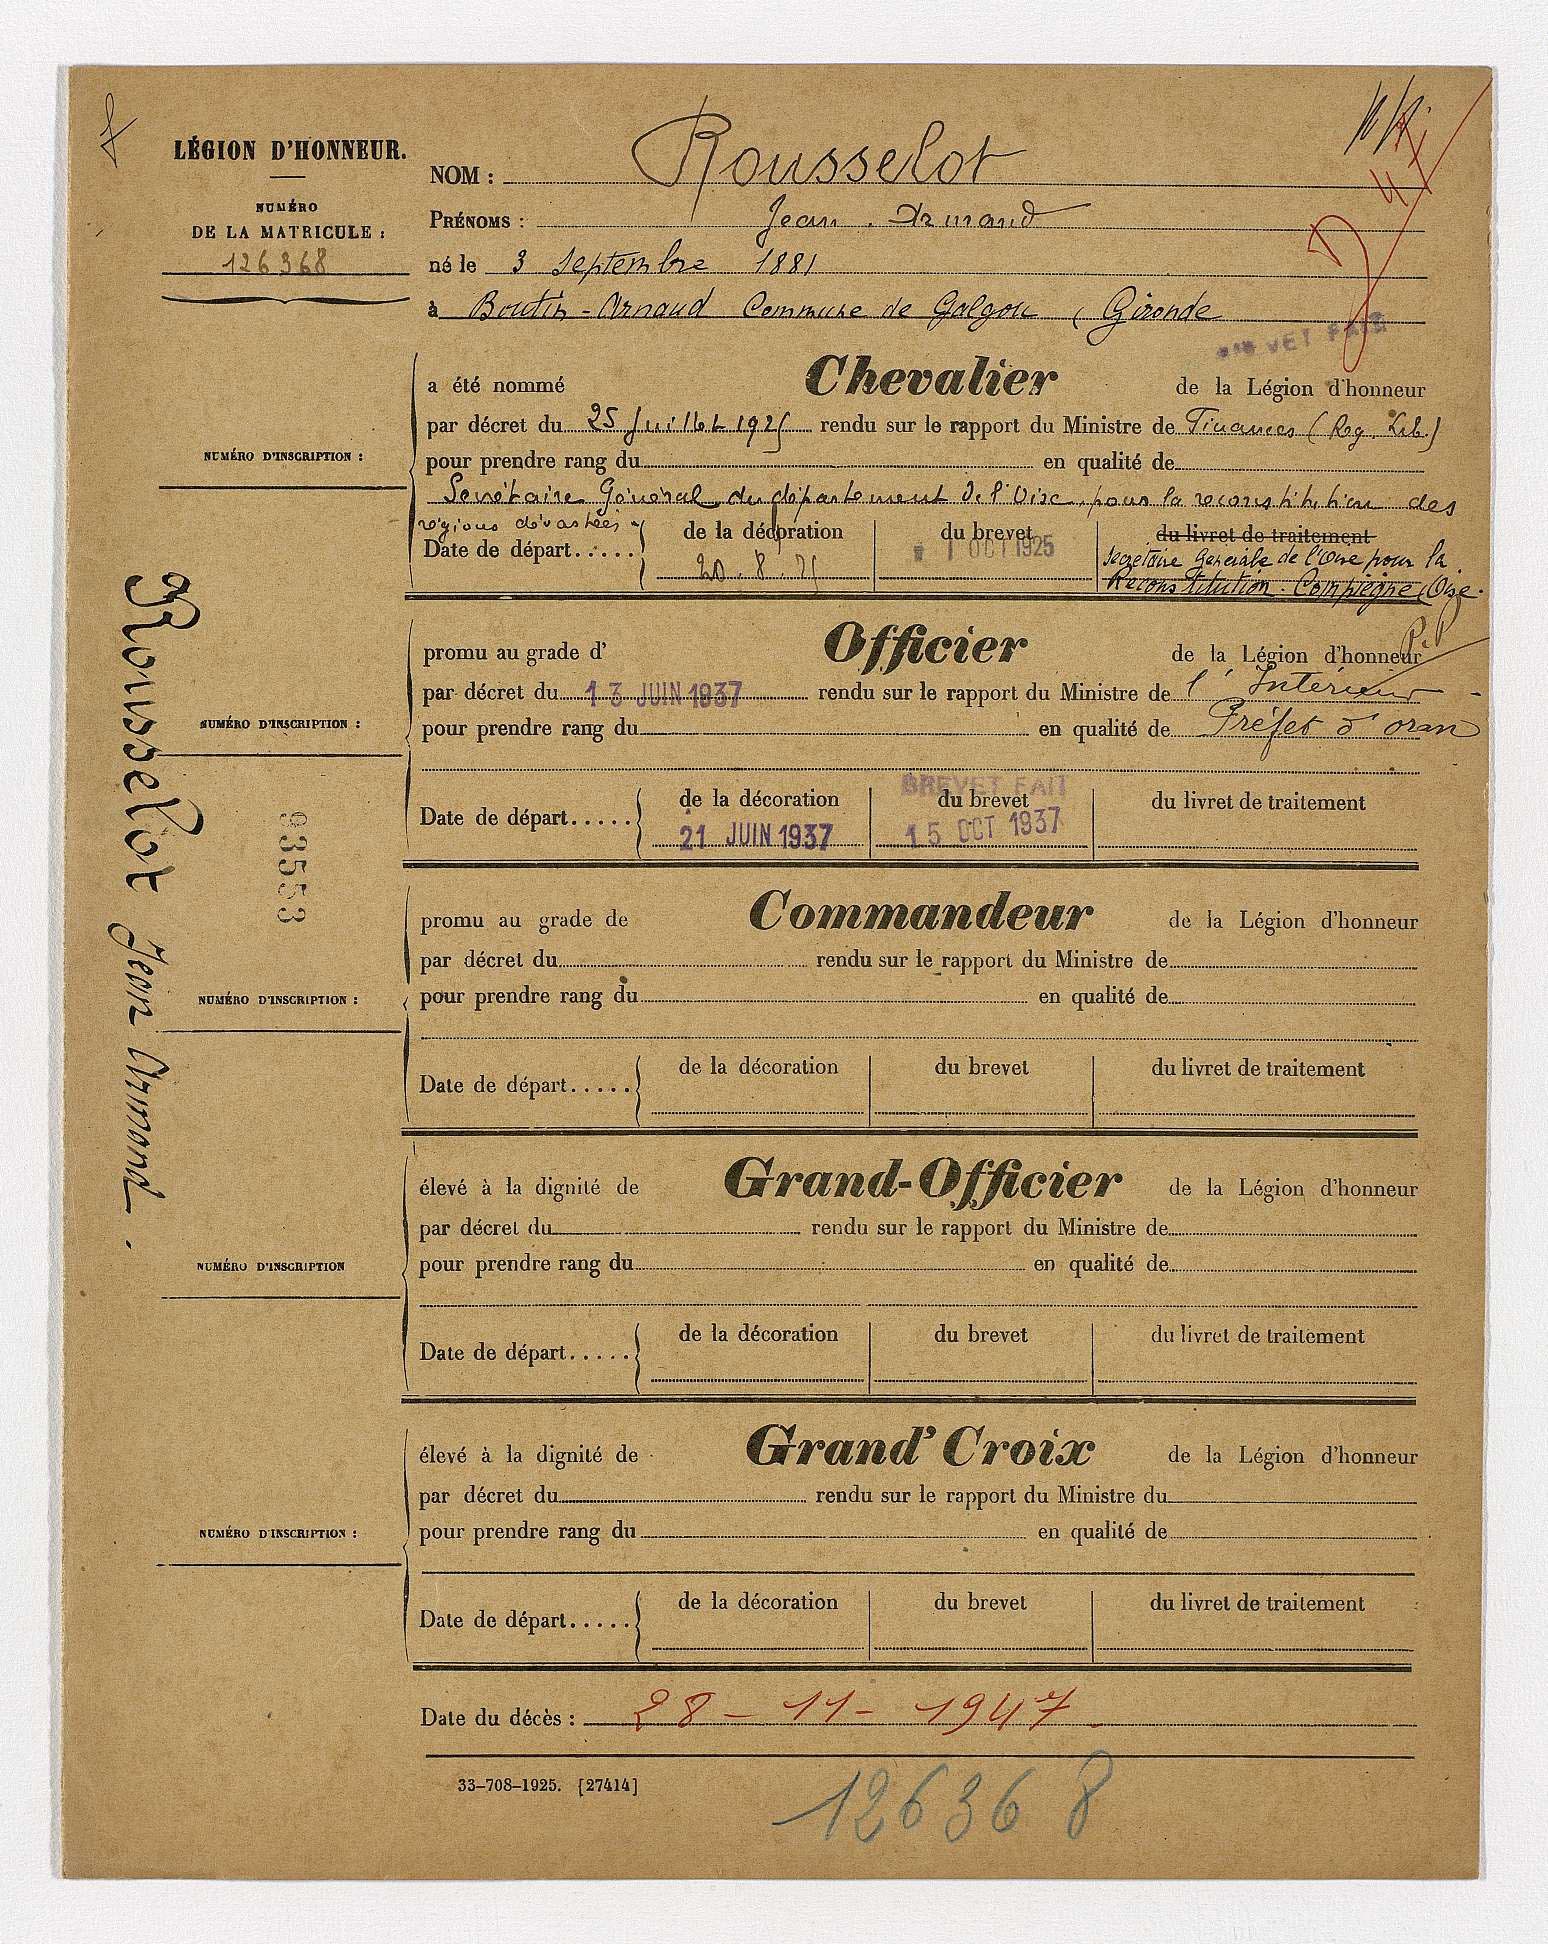 LÉGION D'HONNEUR.
NUMÉRO
DE LA MATRICULE :
126368
NOM : Rousselot
PRÉNOMS : Jean. Armand
né le 3 Septembre 1881
à Boutin-Arnaud Commune de Galgon (Gironde
a été nommé Chevalier de la Légion d'honneur
par décret du 25 Juillet 1925 rendu sur le rapport du Ministre de Finances (Reg. Lib.)
NUMÉRO D'INSCRIPTION :
pour prendre rang du en qualité de
Secrétaire Général du département de l'Oise, pour la reconstitution des
régions dévastées
Date de départ..... de la décoration du brevet du livret de traitement
20.8.25
1 OCT 1925
Secrétaire Générale de l'Oise pour la
Reconstitution. Compiègne (Oise.
promu au grade d' Officier de la Légion d'honneur
par décret du 13 JUIN 1937 rendu sur le rapport du Ministre de l'Intérieur
NUMÉRO D'INSCRIPTION :
pour prendre rang du en qualité de Préfet d'oran
BREVET FAIT
Date de départ..... de la décoration du brevet du livret de traitement
21 JUIN 1937 15 OCT 1937
93553
Rousselot Jean Armand.
promu au grade de Commandeur de la Légion d'honneur
par décret du rendu sur le rapport du Ministre de
NUMÉRO D'INSCRIPTION :
pour prendre rang du en qualité de
Date de départ..... de la décoration du brevet du livret de traitement
élevé à la dignité de Grand-Officier de la Légion d'honneur
par décret du rendu sur le rapport du Ministre de
NUMÉRO D'INSCRIPTION
pour prendre rang du en qualité de
Date de départ..... de la décoration du brevet du livret de traitement
élevé à la dignité de Grand'Croix de la Légion d'honneur
par décret du rendu sur le rapport du Ministre du
NUMÉRO D'INSCRIPTION :
pour prendre rang du en qualité de
Date de départ..... de la décoration du brevet du livret de traitement
Date du décès : 28-11-1947
33-708-1925. [27414]
126368